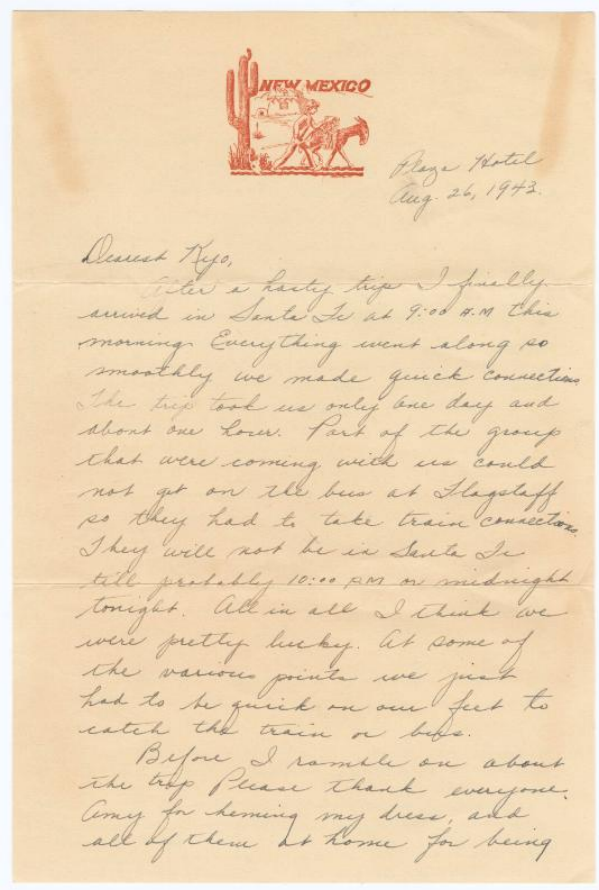 NEW MEXICO
Plaza Hotel
Aug. 26, 1943.
Dearest Kiyo,
After a hasty trip I finally
arrived in Santa Fe at 9:00 A.M this
morning. Everything went along so
smoothly we made quick connections.
The trip took us only one day and
about one hour. Part of the group
that were coming with us could
not get on the bus at Flagstaff
so they had to take train connections.
They will not be in Santa Fe
till probably 10:00 P.M or midnight
tonight. All in all I think we
were pretty lucky. At some of
the various points we just
had to be quick on our feet to
catch the train or bus.
Before I ramble on about
the trip Please thank everyone.
Amy for heming my dress, and
all of them at home for being